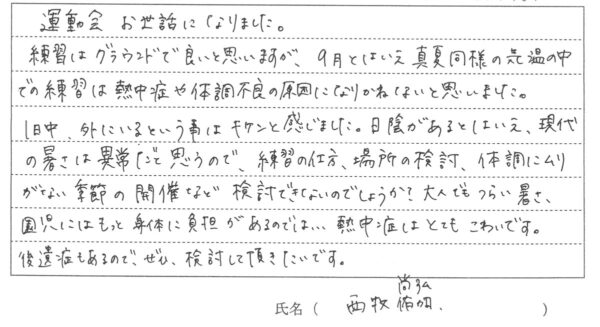 運動会 お世話になりました。
練習はグラウンドで良いと思いますが、9月とはいえ真夏同様の気温の中
での練習は熱中症や体調不良の原因になりかねないと思いました。
1日中、外にいるという事はキケンと感じました。日陰があるとはいえ、現代
の暑さは異常だと思うので、練習の仕方、場所の検討、体調にムリ
がない季節の開催など検討できないのでしょうか?大人でもつらい暑さ、
園児にはもっと身体に負担があるのでは…熱中症はとてもこわいです。
後遺症もあるので、ぜひ、検討して頂きたいです。
尚弘
氏名( 西牧 佑 )